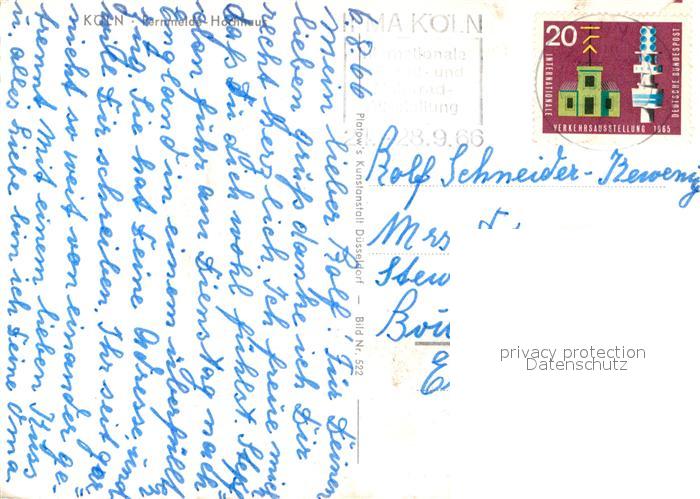 KÖLN · Fernmelde-Hochhaus
IFMA KÖLN
Internationale
und
28.9.66
20
INTERNATIONALE
VERKEHRSAUSSTELLUNG 1965
DEUTSCHE BUNDESPOST
Platow's Kunstanstalt Düsseldorf — Bild Nr. 522
Mein lieber Rolf! Für Deinen
lieben Gruß danke ich Dir
recht herzlich. Ich freue mich
daß Du dich wohl fühlst.
fuhr am Dienstag nach
England in einem überfüllten
Sie hat Deine Adresse und
Dir schreiben. Ihr seit gar
nicht so weit von einander ge-
trennt Mit einem lieben Kuss
u. alles Liebe bin ich Deine Oma
Rolf Schneider-
Mrs
privacy protection
Datenschutz